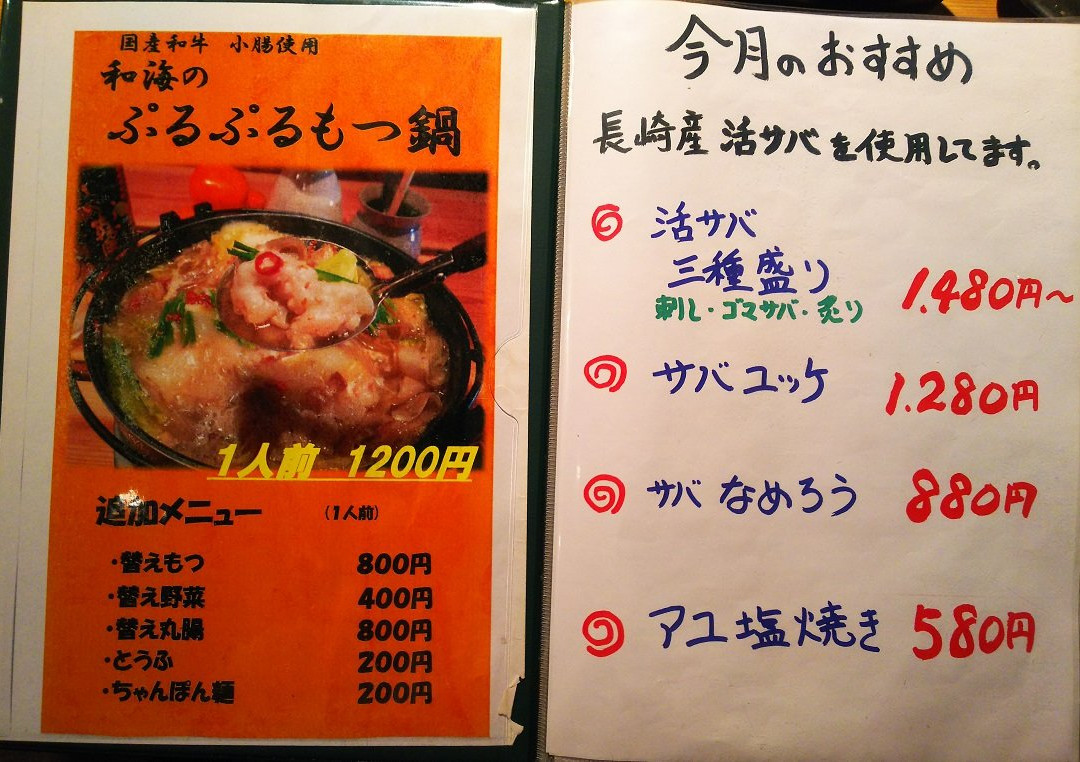 国産和牛 小腸使用
和海の
ぷるぷるもつ鍋
1人前 1200円
追加メニュー (1人前)
・替えもつ 800円
・替え野菜 400円
・替え丸腸 800円
・とうふ 200円
・ちゃんぽん麺 200円
今月のおすすめ
長崎産 活サバを使用してます。
活サバ
三種盛り 1.480円~
刺し・ゴマサバ・炙り
サバユッケ 1.280円
サバ なめろう 880円
アユ塩焼き 580円